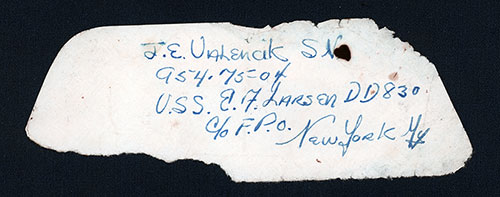 J.E. Valencik SN
954-75-04
U.S.S. E.F. LARSEN DD830
c/o F.P.O.
New York NY